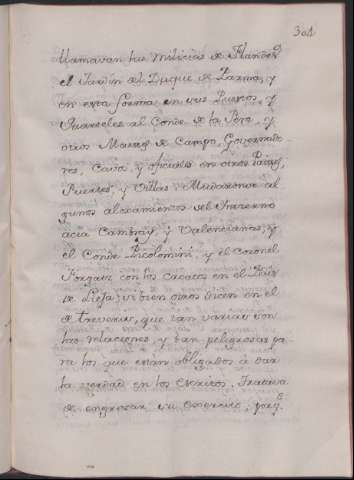 301
llamavan las milicias de Flandes
el Jardin del Duque de Parma, y
en esta forma en sus Puestos, y
Quarteles al Conde de la Pere, y
otros Maeses de Campo, Governado-
res, Cavos, y oficiales en otros Paises,
Puertes, y Villas. Mudaronse al-
gunos aloxamientos del Invierno
acia Cambray, y Valencianas, y
el Conde Picolomini, y el coronel
Forgats con los cracatos en el Pais
de Lieja; vivien otros lucen en el
de treveris, que tan varias son
las relaciones, y tan peligrosas pa-
ra los que estan obligados à dar
la verdad en los escritos. Tratava
de engrosar su exercito, porq.